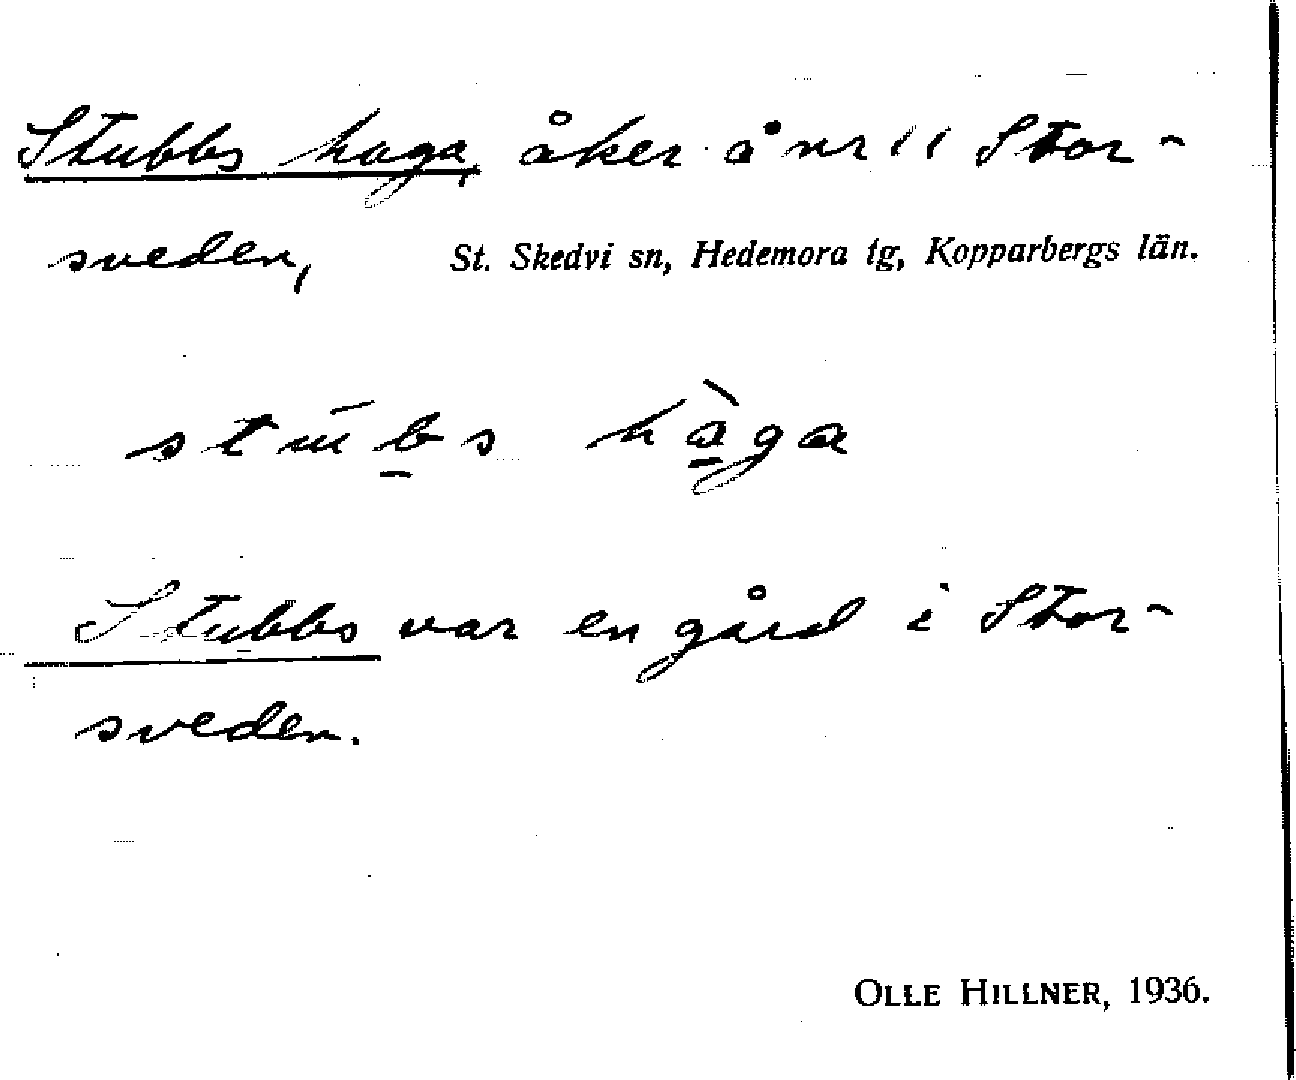 Stubbs haga, åker å nr 11 Stor-
sveden, St. Skedvi sn, Hedemora tg, Kopparbergs län.
stúb̲s hà̲ga
Stubbs var en gård i Stor-
sveden.
OLLE HILLNER, 1936.